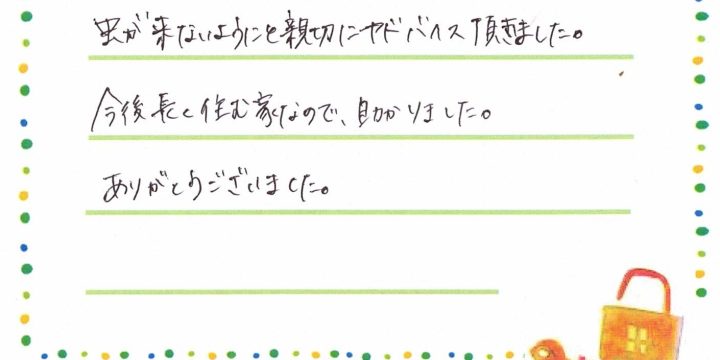 虫が来ないようにと親切にアドバイス頂きました。
今後長く住む家なので、助かりました。
ありがとうございました。